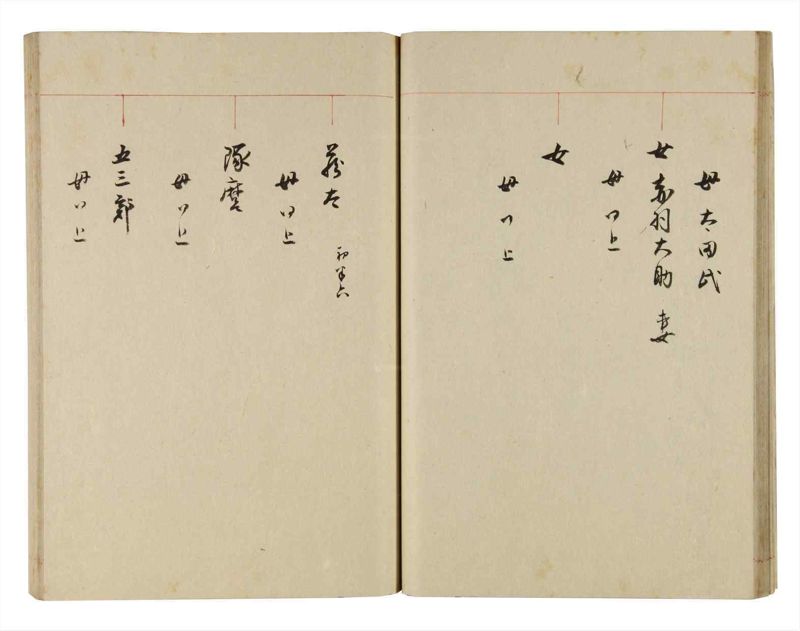 母太田氏
女 赤羽大助 妻
母同上
女
母同上
藤太 初半六
母同上
琢磨
母同上
五三郎
母同上